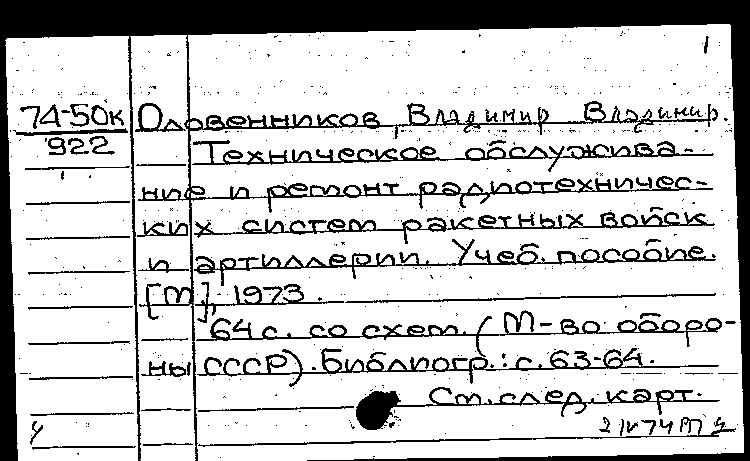 1
74-50к Оловенников, Владимир Владимир.
922 Техническое обслужива-
ние и ремонт радиотехничес-
ких систем ракетных войск
и артиллерии. Учеб. пособие.
[М], 1973.
64 с. со схем. (М-во оборо-
ны СССР). Библиогр.: с. 63-64.
См. след. карт.
У 2 IV 74